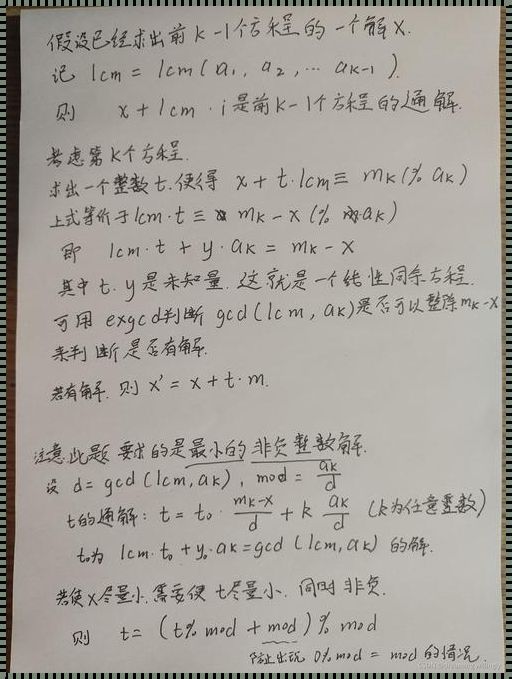 假设已经求出前k-1个方程的一个解x.
记 lcm = lcm(a₁, a₂, … aₖ₋₁).
则 x + lcm · i 是前k-1个方程的通解.
考虑第k个方程.
求出一个整数t.使得 x + t·lcm ≡ mₖ(% aₖ)
上式等价于lcm·t ≡ mₖ - x (% aₖ)
即 lcm·t + y·aₖ = mₖ - x
其中t.y是未知量.这就是一个线性同余方程.
可用 exgcd判断 gcd(lcm, aₖ)是否可以整除mₖ-x
来判断是否有解.
若有解.则 x' = x + t·m.
注意.此题要求的是最小的非负整数解.
设 d = gcd(lcm, aₖ), mod = aₖ/d
t的通解: t = t₀ · (mₖ-x)/d + k aₖ/d (k为任意整数)
t₀为 lcm·t₀ + y₀·aₖ = gcd(lcm, aₖ) 的解.
若使x尽量小.需要使 t尽量小.同时非负.
则 t = (t % mod + mod) % mod
防止出现 0% mod = mod 的情况.